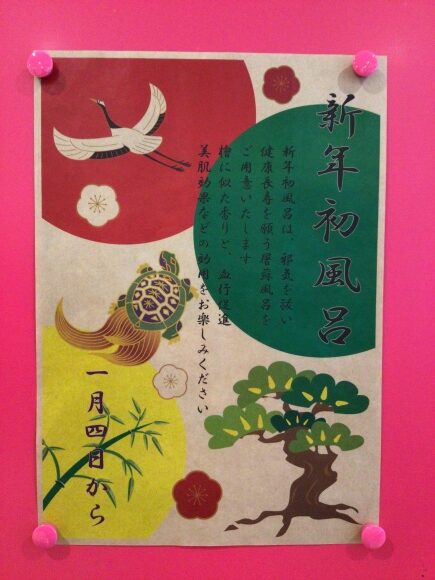 新年初風呂
新年初風呂は、邪気を祓い
健康長寿を願う屠蘇風呂を
ご用意いたします
檜に似た香りと、血行促進
美肌効果などの効用をお楽しみください
一月四日から